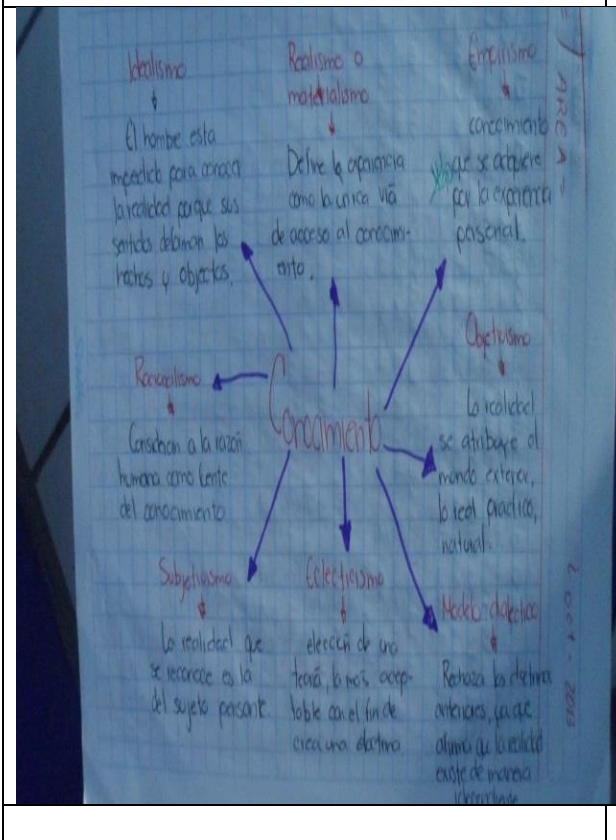 TAREA
Idealismo
El hombe esta
impedido para conocer
la realidad porque sus
sentidos deforman los
hechos y objectos.
Realismo o
materialismo
Define la apariencia
como la unica vía
de acceso al conocimi-
ento.
Empirismo
conocimiento
que se adquiere
por la experiencia
personal.
Racionalismo
Consideran a la razón
humana como fuente
del conocimiento
Conocimiento
Objetivismo
La realidad
se atribuye al
mundo exterior,
lo real practico,
natural.
Subjetivismo
La realidad que
se reconoce es la
del sujeto pensante.
Eclecticismo
elección de una
teoría, la más acep-
table con el fin de
crear una doctrina.
Modelo dialectico
Rechaza las doctrinas
anteriores, ya que
afirma que la realidad
existe de manera
independiente
2013